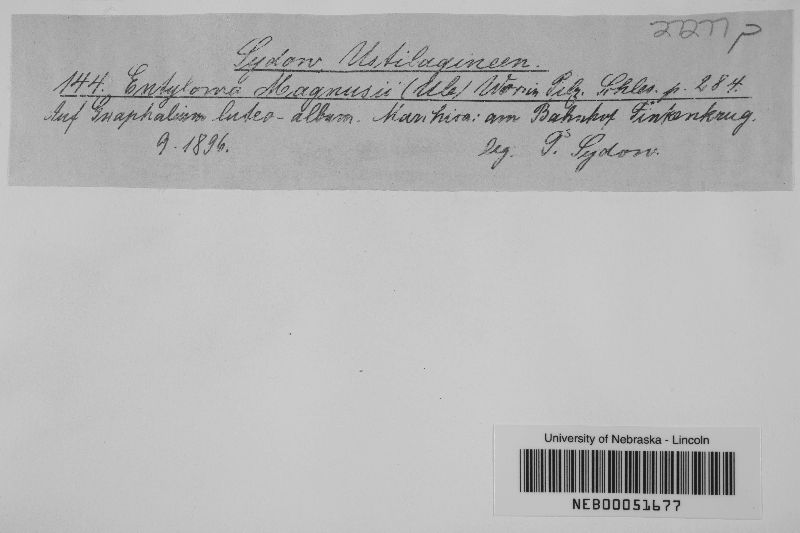 27277 p
Sydow, Ustilagineen.
144. Entyloma Magnusii (Ule) Wor. in Pilz. Schles. p. 284.
Auf Gnaphalium luteo-album. Marchica: am Bahnhof Finkenkrug.
9. 1896. leg. P. Sydow.
University of Nebraska - Lincoln
NEB00051677